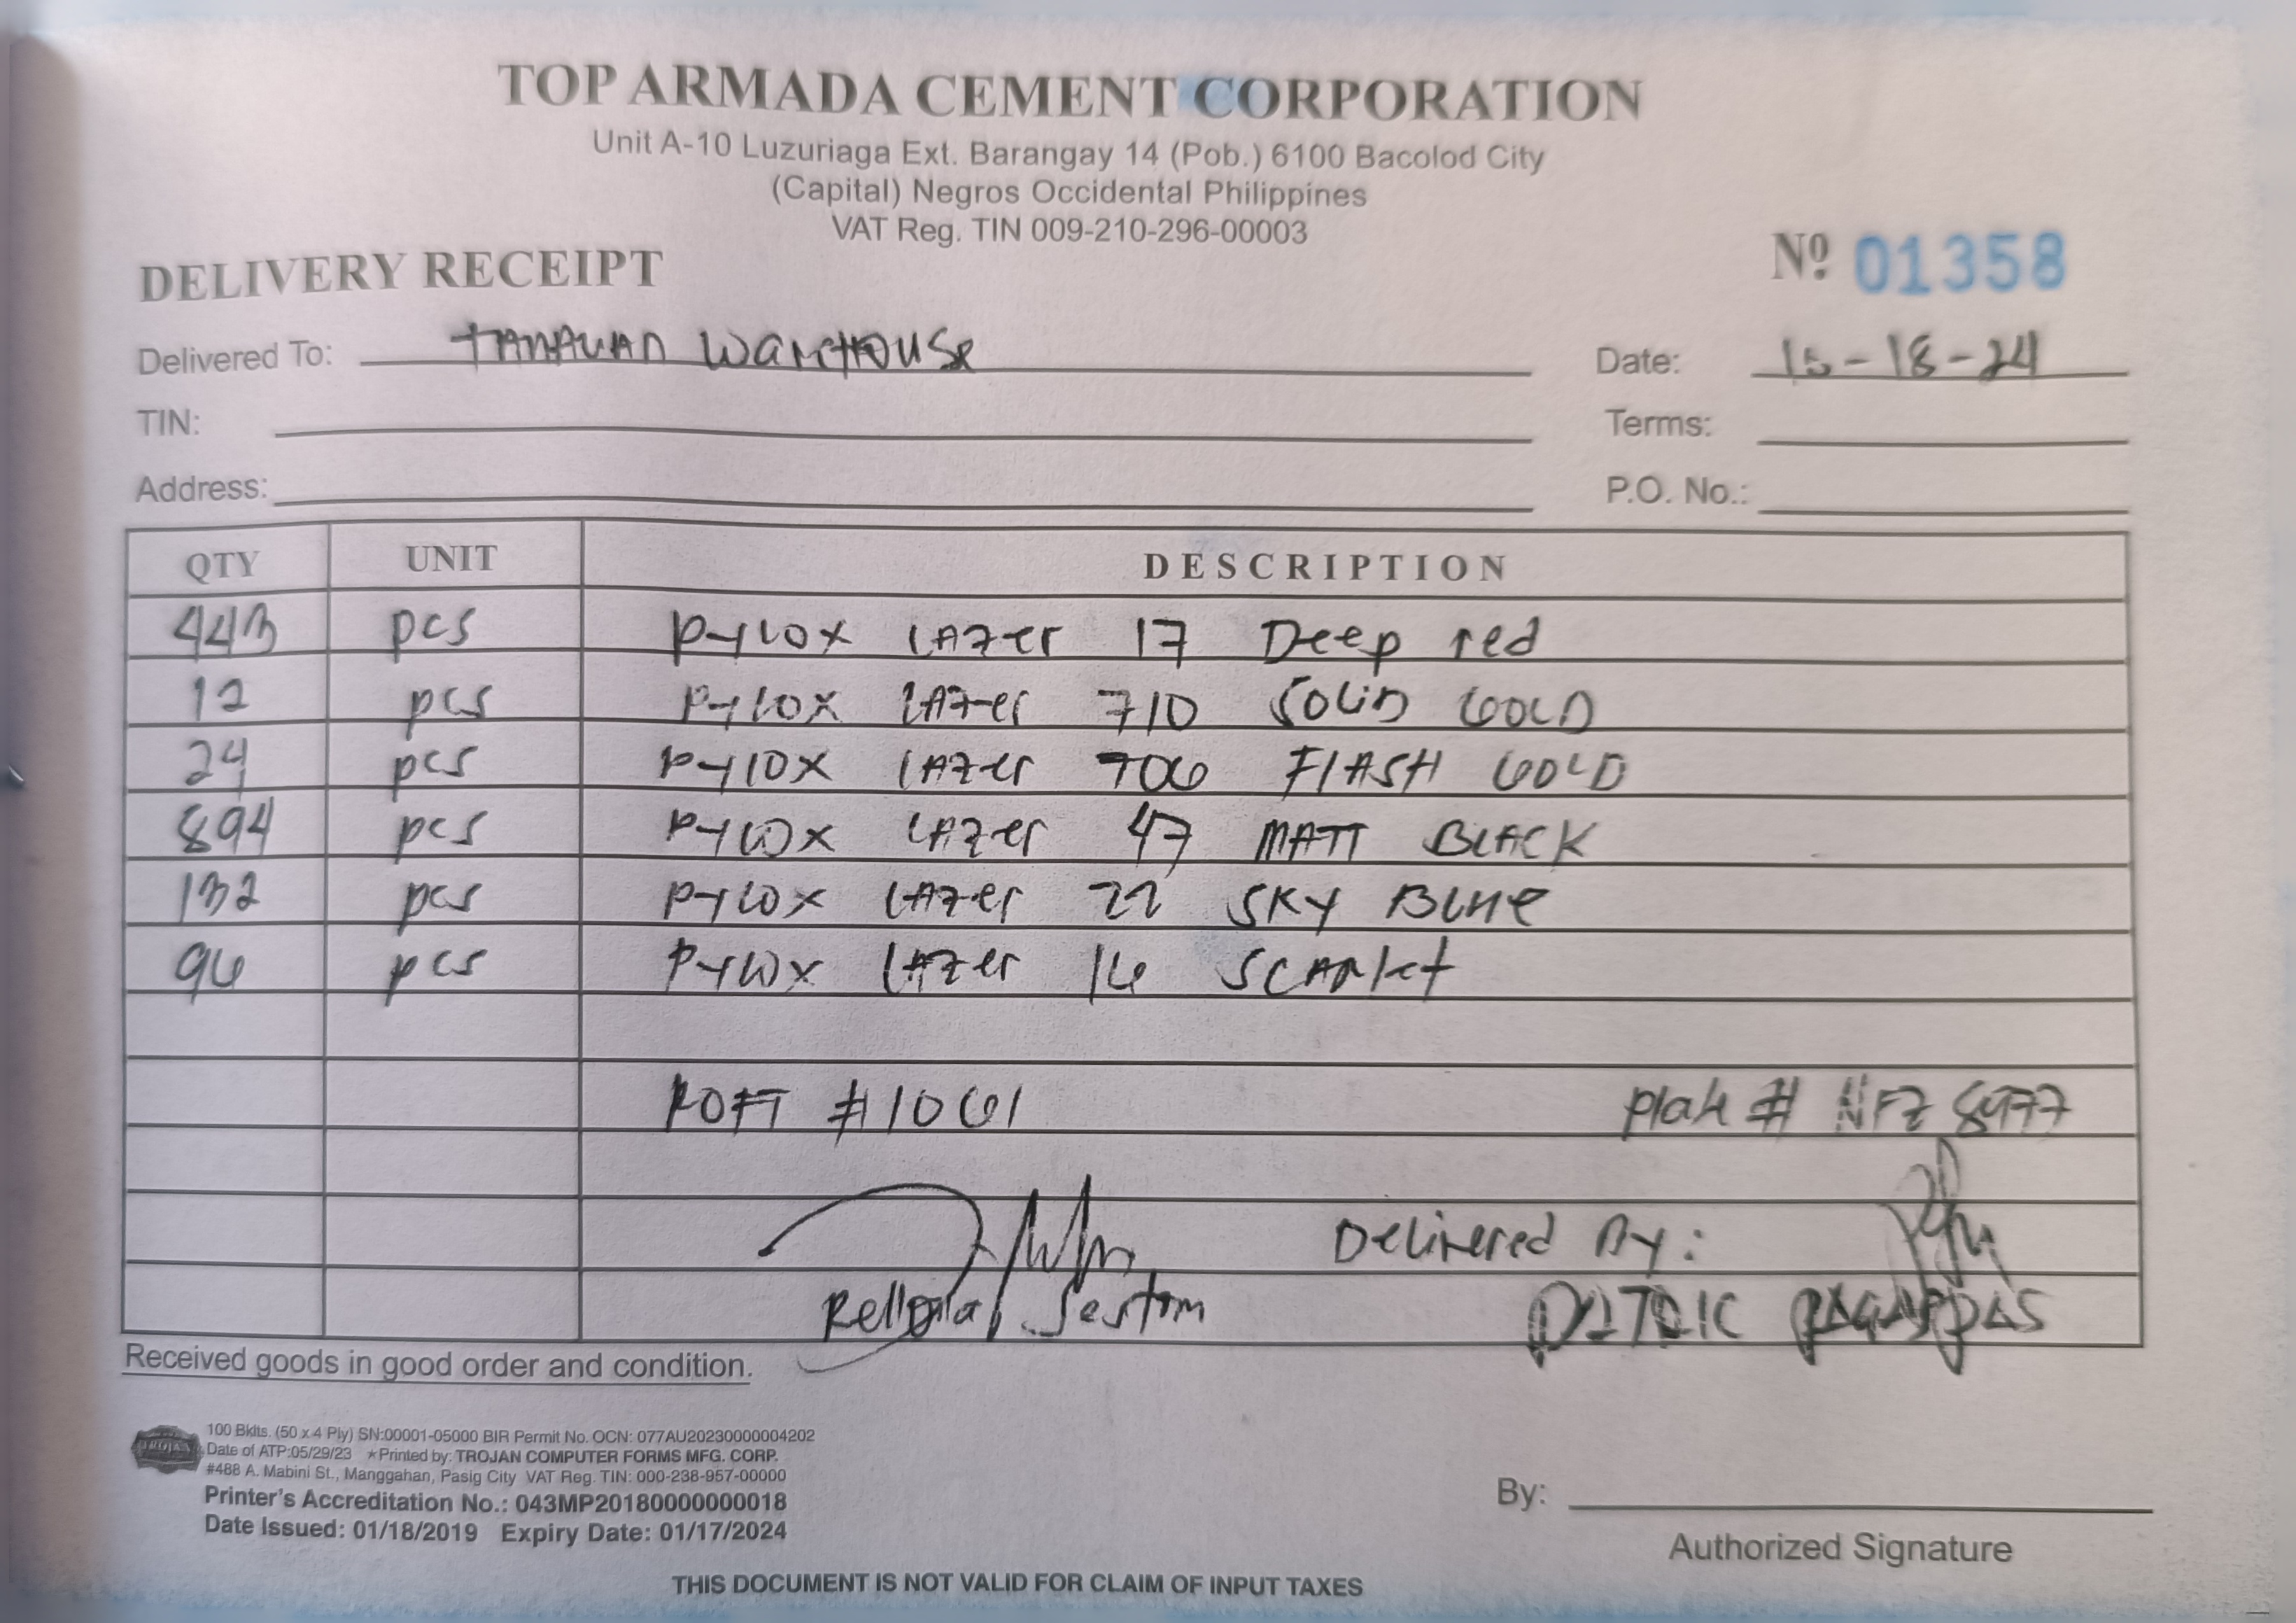 TOP ARMADA CEMENT CORPORATION
Unit A-10 Luzuriaga Ext. Barangay 14 (Pob.) 6100 Bacolod City
(Capital) Negros Occidental Philippines
VAT Reg. TIN 009-210-296-00003
DELIVERY RECEIPT
Nº 01358
Delivered To: TANAUAN WAREHOUSE Date: -18-24
TIN: Terms:
Address: P.O. No.:
QTY UNIT DESCRIPTION
443 pcs PYLOX LAZER 17 Deep red
12 pcs PYLOX LAZER 710 SOLID GOLD
24 pcs PYLOX LAZER 706 FLASH GOLD
894 pcs PYLOX LAZER 47 MATT BLACK
132 pcs PYLOX LAZER 22 SKY BLUE
96 pcs PYLOX LAZER 16 SCARlet
#1061 plate # NFZ 8977
Delivered By:
Received goods in good order and condition.
100 Bklts. (50 x 4 Ply) SN:00001-05000 BIR Permit No. OCN: 077AU20230000004202
TROJAN
Date of ATP:05/29/23 ★Printed by: TROJAN COMPUTER FORMS MFG. CORP.
#488 A. Mabini St., Manggahan, Pasig City VAT Reg. TIN: 000-238-957-00000
Printer's Accreditation No.: 043MP20180000000018
Date Issued: 01/18/2019 Expiry Date: 01/17/2024
By:
Authorized Signature
THIS DOCUMENT IS NOT VALID FOR CLAIM OF INPUT TAXES